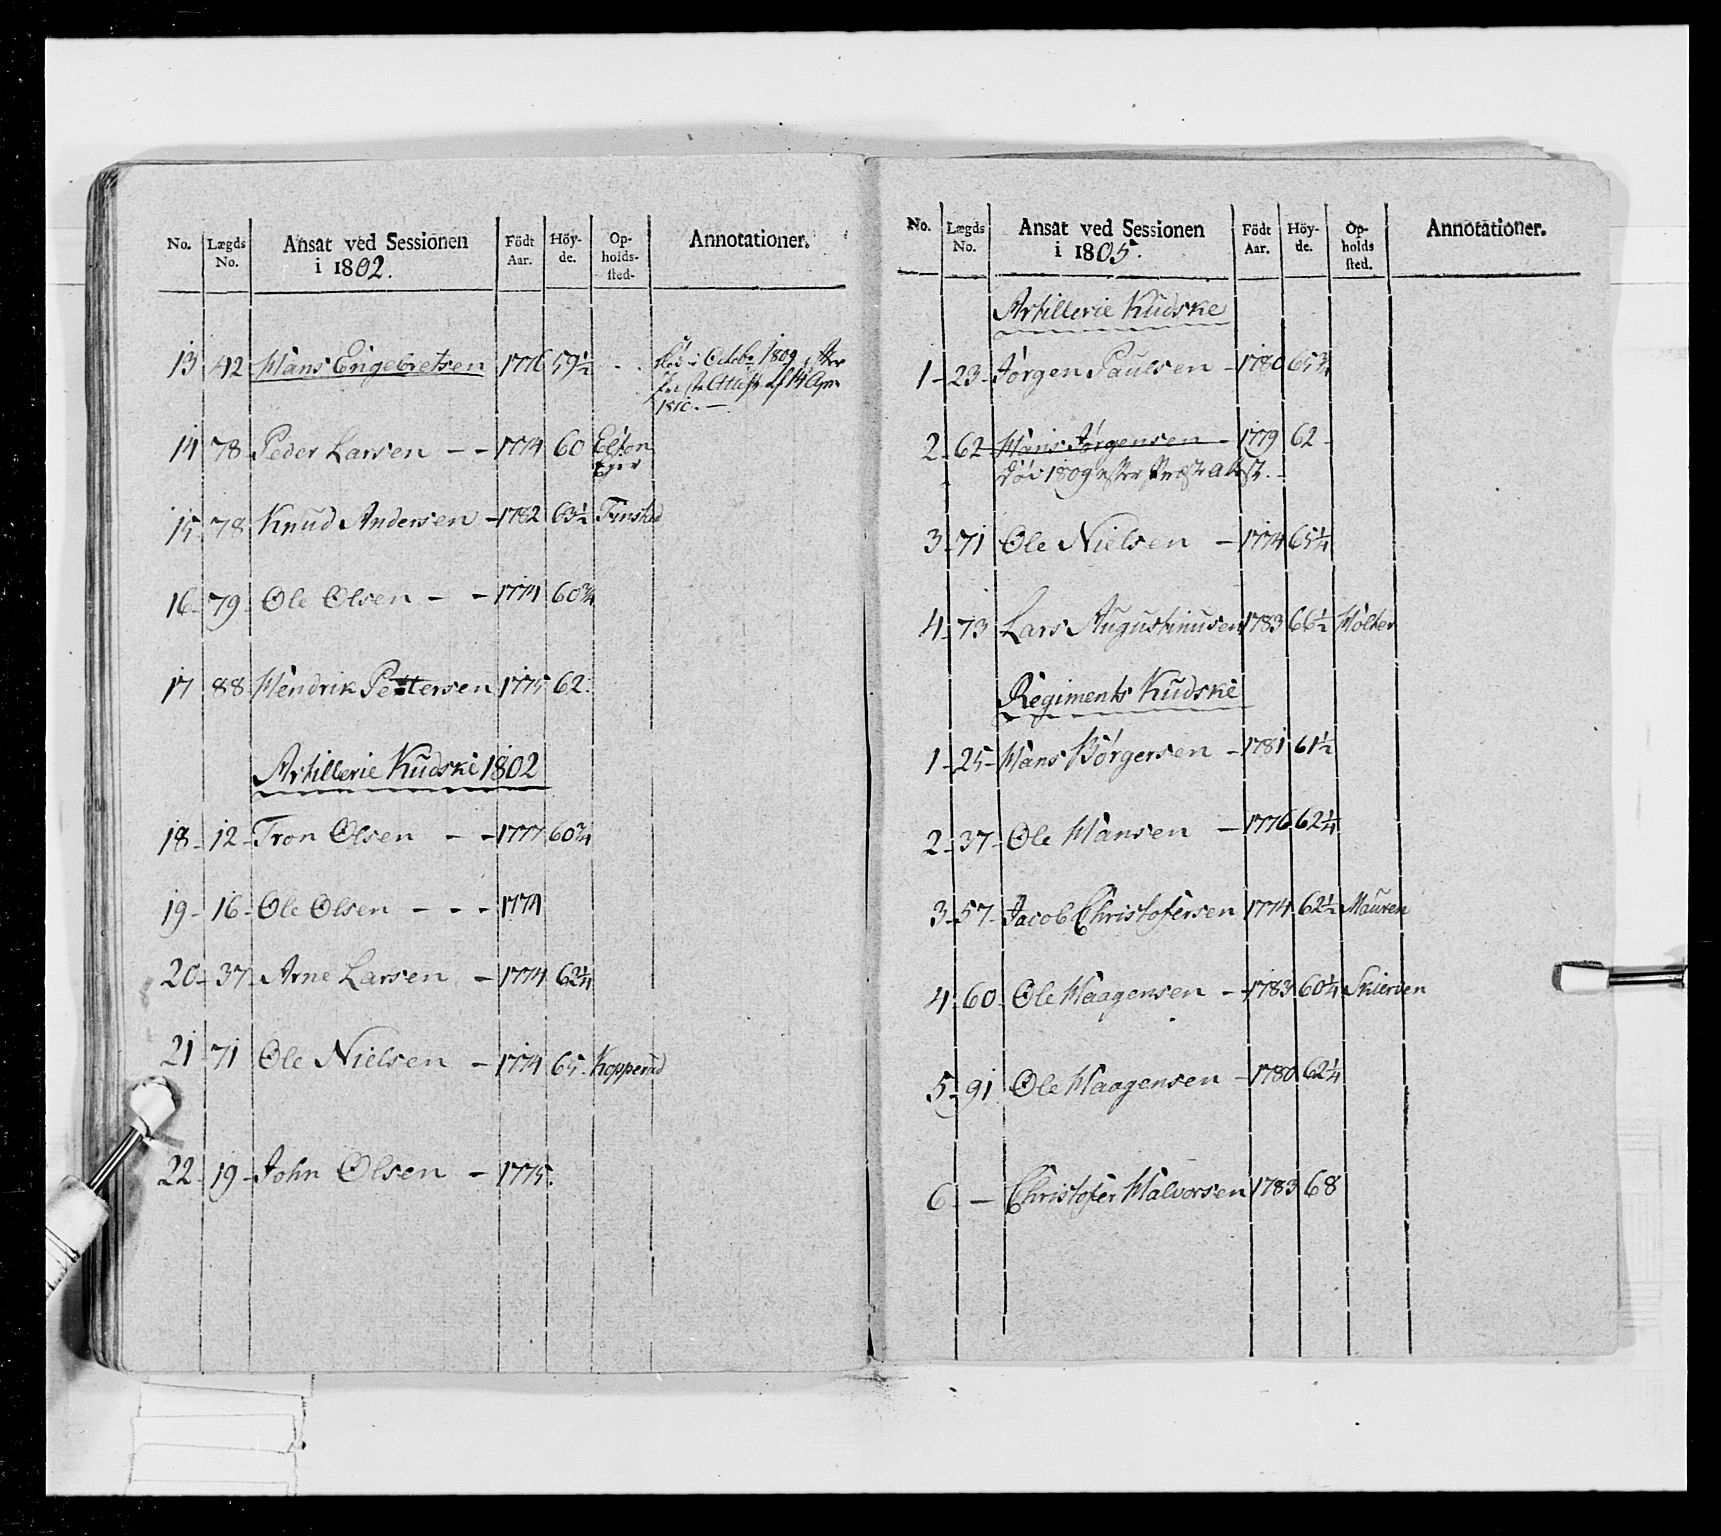 No. Lægds No. Ansat ved Sessionen i 1802. Födt Aar. Höyde. Opholds-sted. Annotationer.
13 42 Hans Engebretsen 1776 59½ . . Død i Octobr 1809, efter
Præste Attest af 14 Apr
1810. —
14 78 Peder Larsen - - 1774 60
Eger
15 78 Knud Andersen - 1782 63½ Finstad
16 79 Ole Olsen - - 1774 60¾
17 88 Hendrik Pettersen 1775 62.
Artillerie Kudske 1802
18 12 Tron Olsen - - 1777 60¾
19 16 Ole Olsen - - - 1774
20 37 Arne Larsen - 1774 62¼
21 71 Ole Nielsen - 1774 65. Kopperud
22 19 John Olsen - 1775.
No. Lægds No. Ansat ved Sessionen i 1805. Födt Aar. Höyde. Opholds sted. Annotationer.
Artillerie Kudske
1 23 Jørgen Paulsen - 1780 65¾
2 62 Hans Jørgensen - 1779 62 -
død 1809 efter Præst attest. -
3 71 Ole Nielsen - 1774 65¼
4 73 Lars Augustinusen 1783 66½ Holter
Regiments Kudske
1 25 Hans Børgersen - 1781 61½
2 37 Ole Hansen - 1776 62¼
3 57 Jacob Christofersen 1774 62½ Mauren
4 60 Ole Haagensen - 1783 60¼ Skierven
5 91 Ole Haagensen - 1780 62¼
6 - Christofer Halvorsen 1783 68